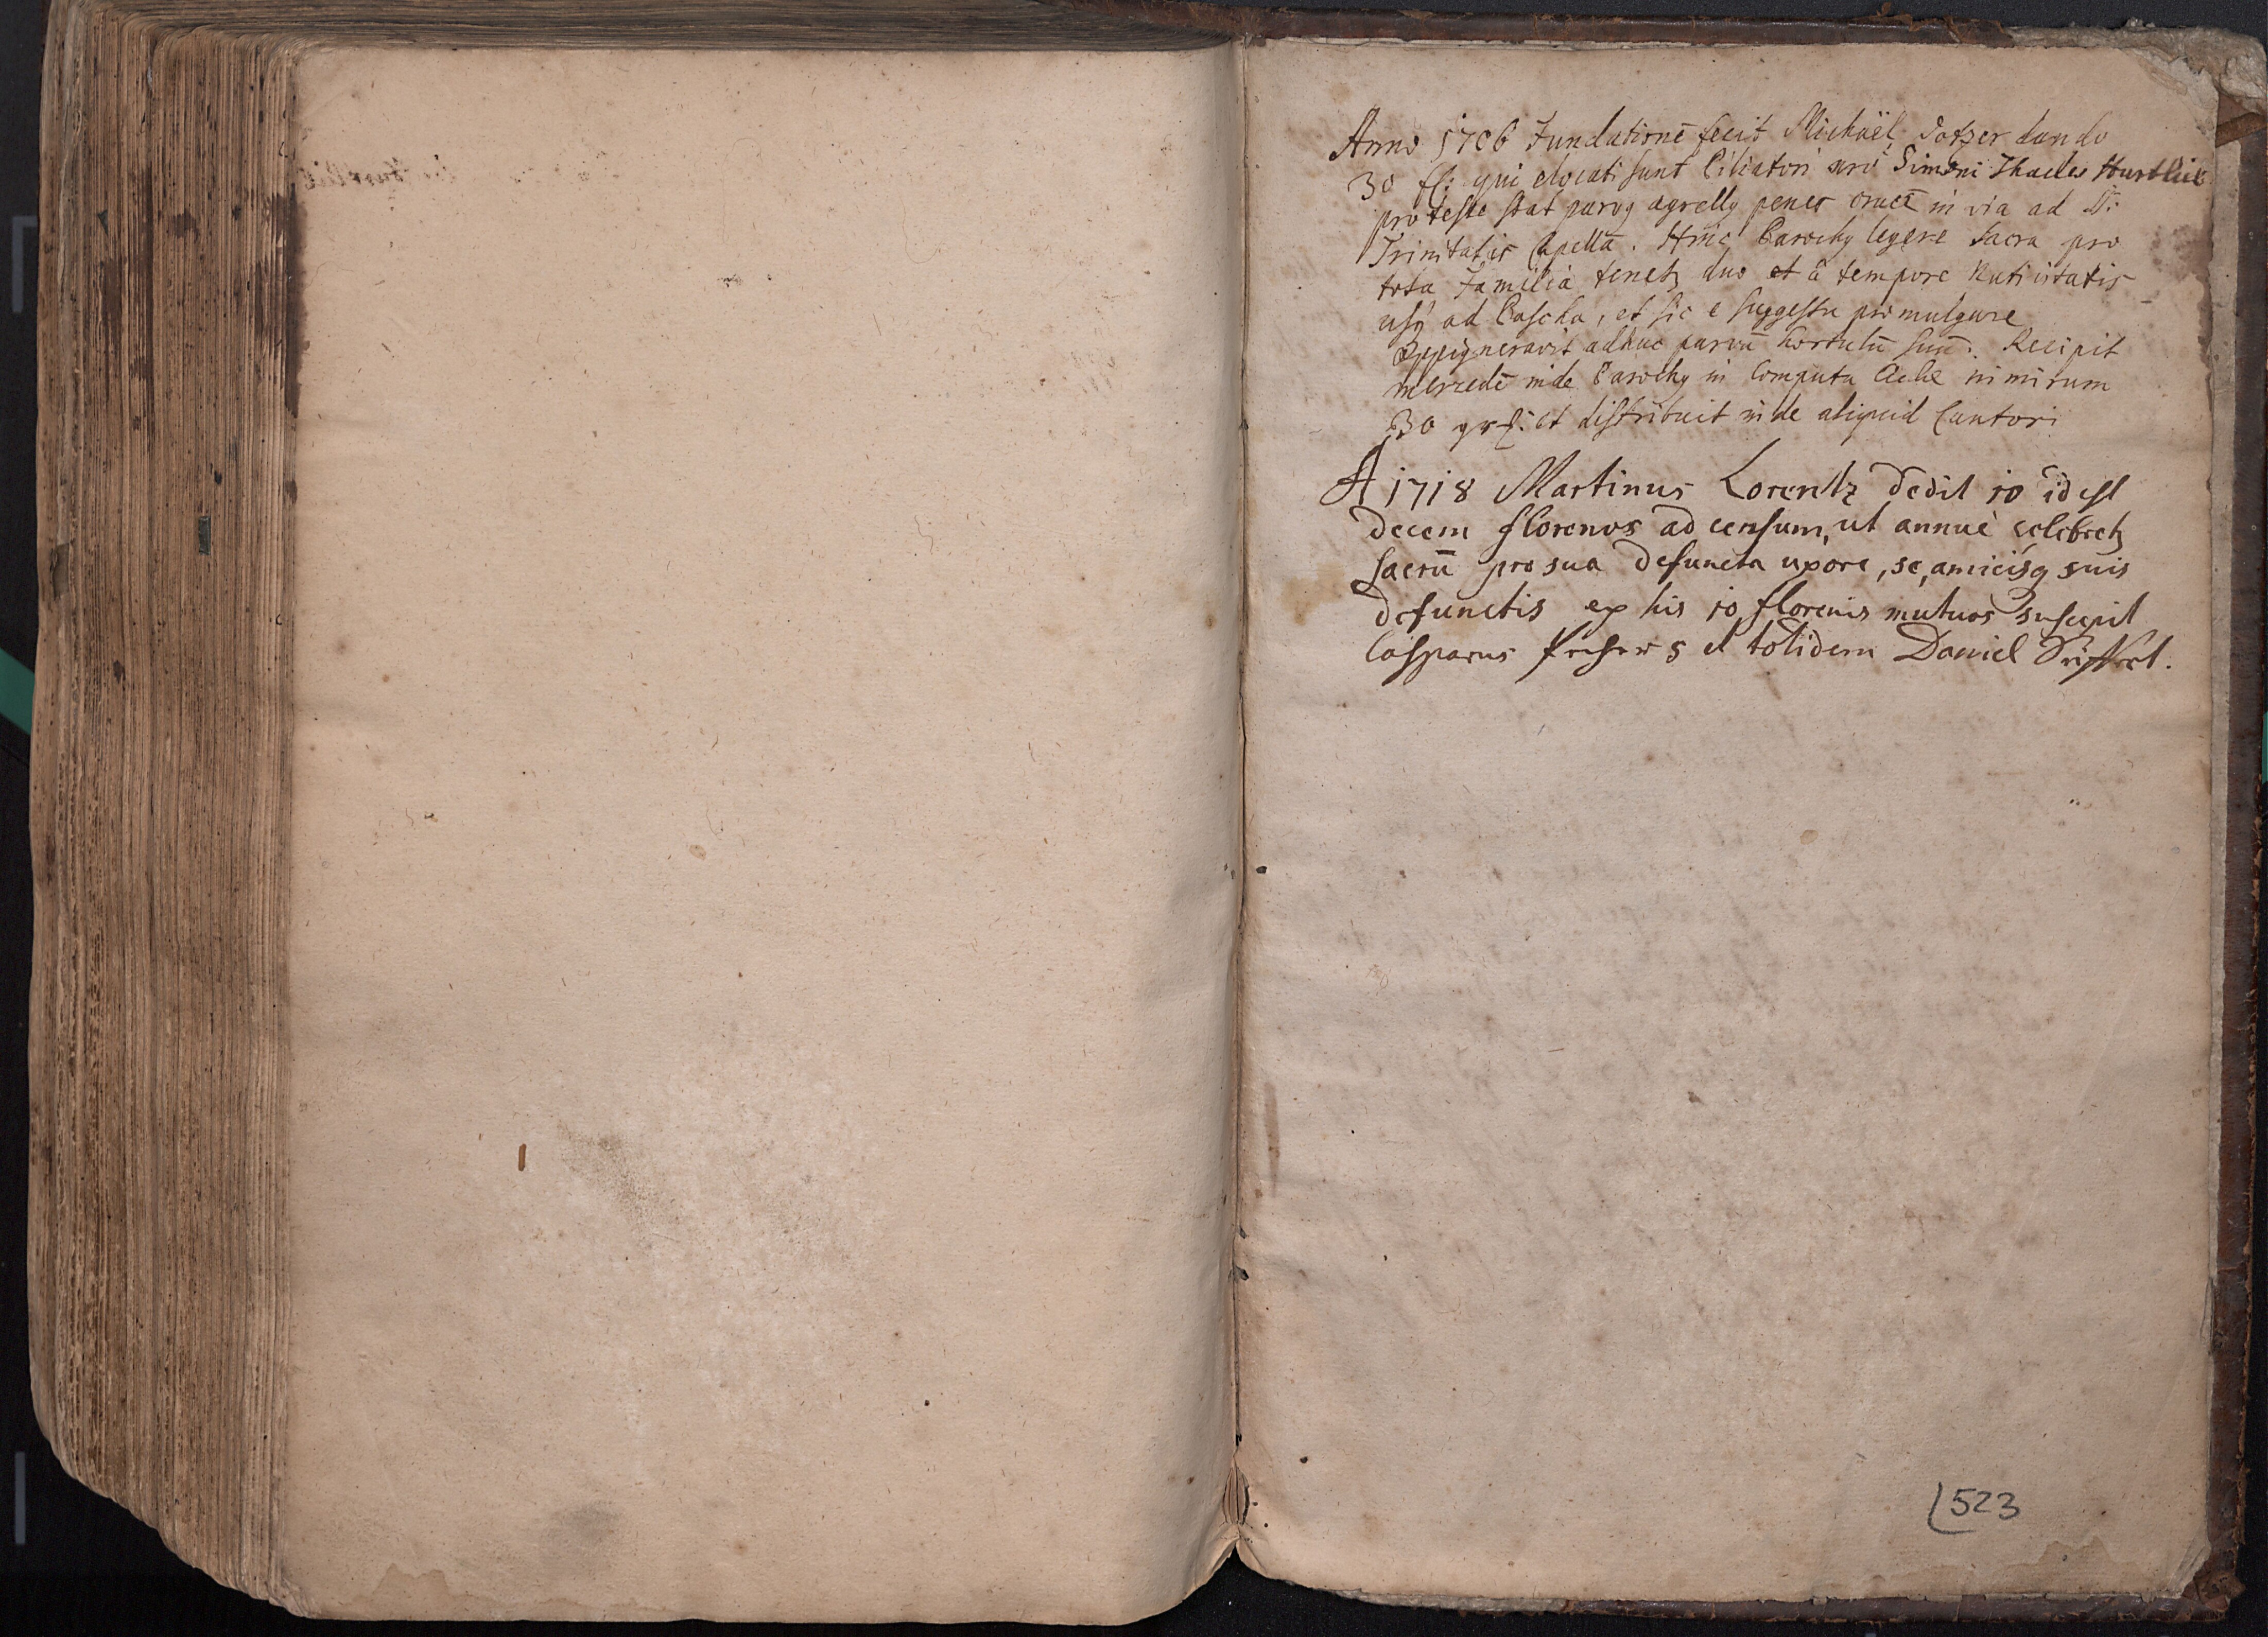 Anno 1706 Fundationē fecit Michaël Totzer dando
30 fl: qui elocati sunt Ciliatori nrō Simoni Thadeo Hurtlich
pro teste stat parvꝯ agrellꝯ penes crucē in via ad SS:
Trinitatis Capellā. Hinc Parochꝯ legere Sacra pro
tota Familia tenetꝛ duo et à tempore Nativitatis
usqꝫ ad Pascha, et sic e suggestu promulgare
Oppigneravit adhuc parvū hortulū suū. Recipit
mercedē inde Parochꝯ in Computu Eccl̄ae nimirum
30 grs: et distribuit inde aliquid Cantori
A 1718 Martinus Lorentz dedit 10 id est
decem florenos ad censum, ut annuè celebretꝛ
sacrū pro sua defuncta uxore, se, amicisqꝫ suis
defunctis ex his 10 florenis mutuos suscepit
Casparus 5 et totidem Daniel
523